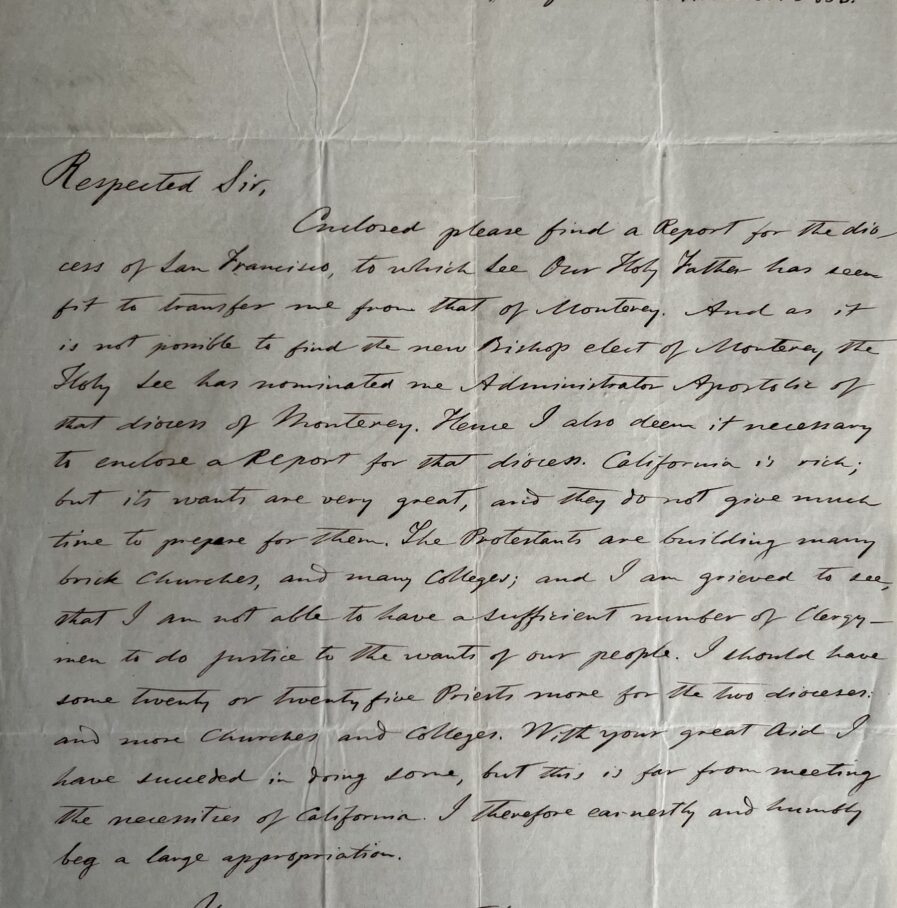 Respected Sir,
Enclosed please find a Report for the dio-
cess of San Francisco, to which See Our Holy Father has seen
fit to transfer me from that of Monterey. And as it
is not possible to find the new Bishop elect of Monterey the
Holy See has nominated me Administrator Apostolic of
that diocess of Monterey. Hence I also deem it necessary
to enclose a Report for that diocess. California is rich;
but its wants are very great, and they do not give much
time to prepare for them. The Protestants are building many
brick Churches, and many Colleges; and I am grieved to see,
that I am not able to have a sufficient number of Clergy-
men to do justice to the wants of our people. I should have
some twenty or twenty five Priests more for the two dioceses:
and more Churches and Colleges. With your great Aid I
have succeded in doing some, but this is far from meeting
the necessities of California. I therefore earnestly and humbly
beg a large appropriation.